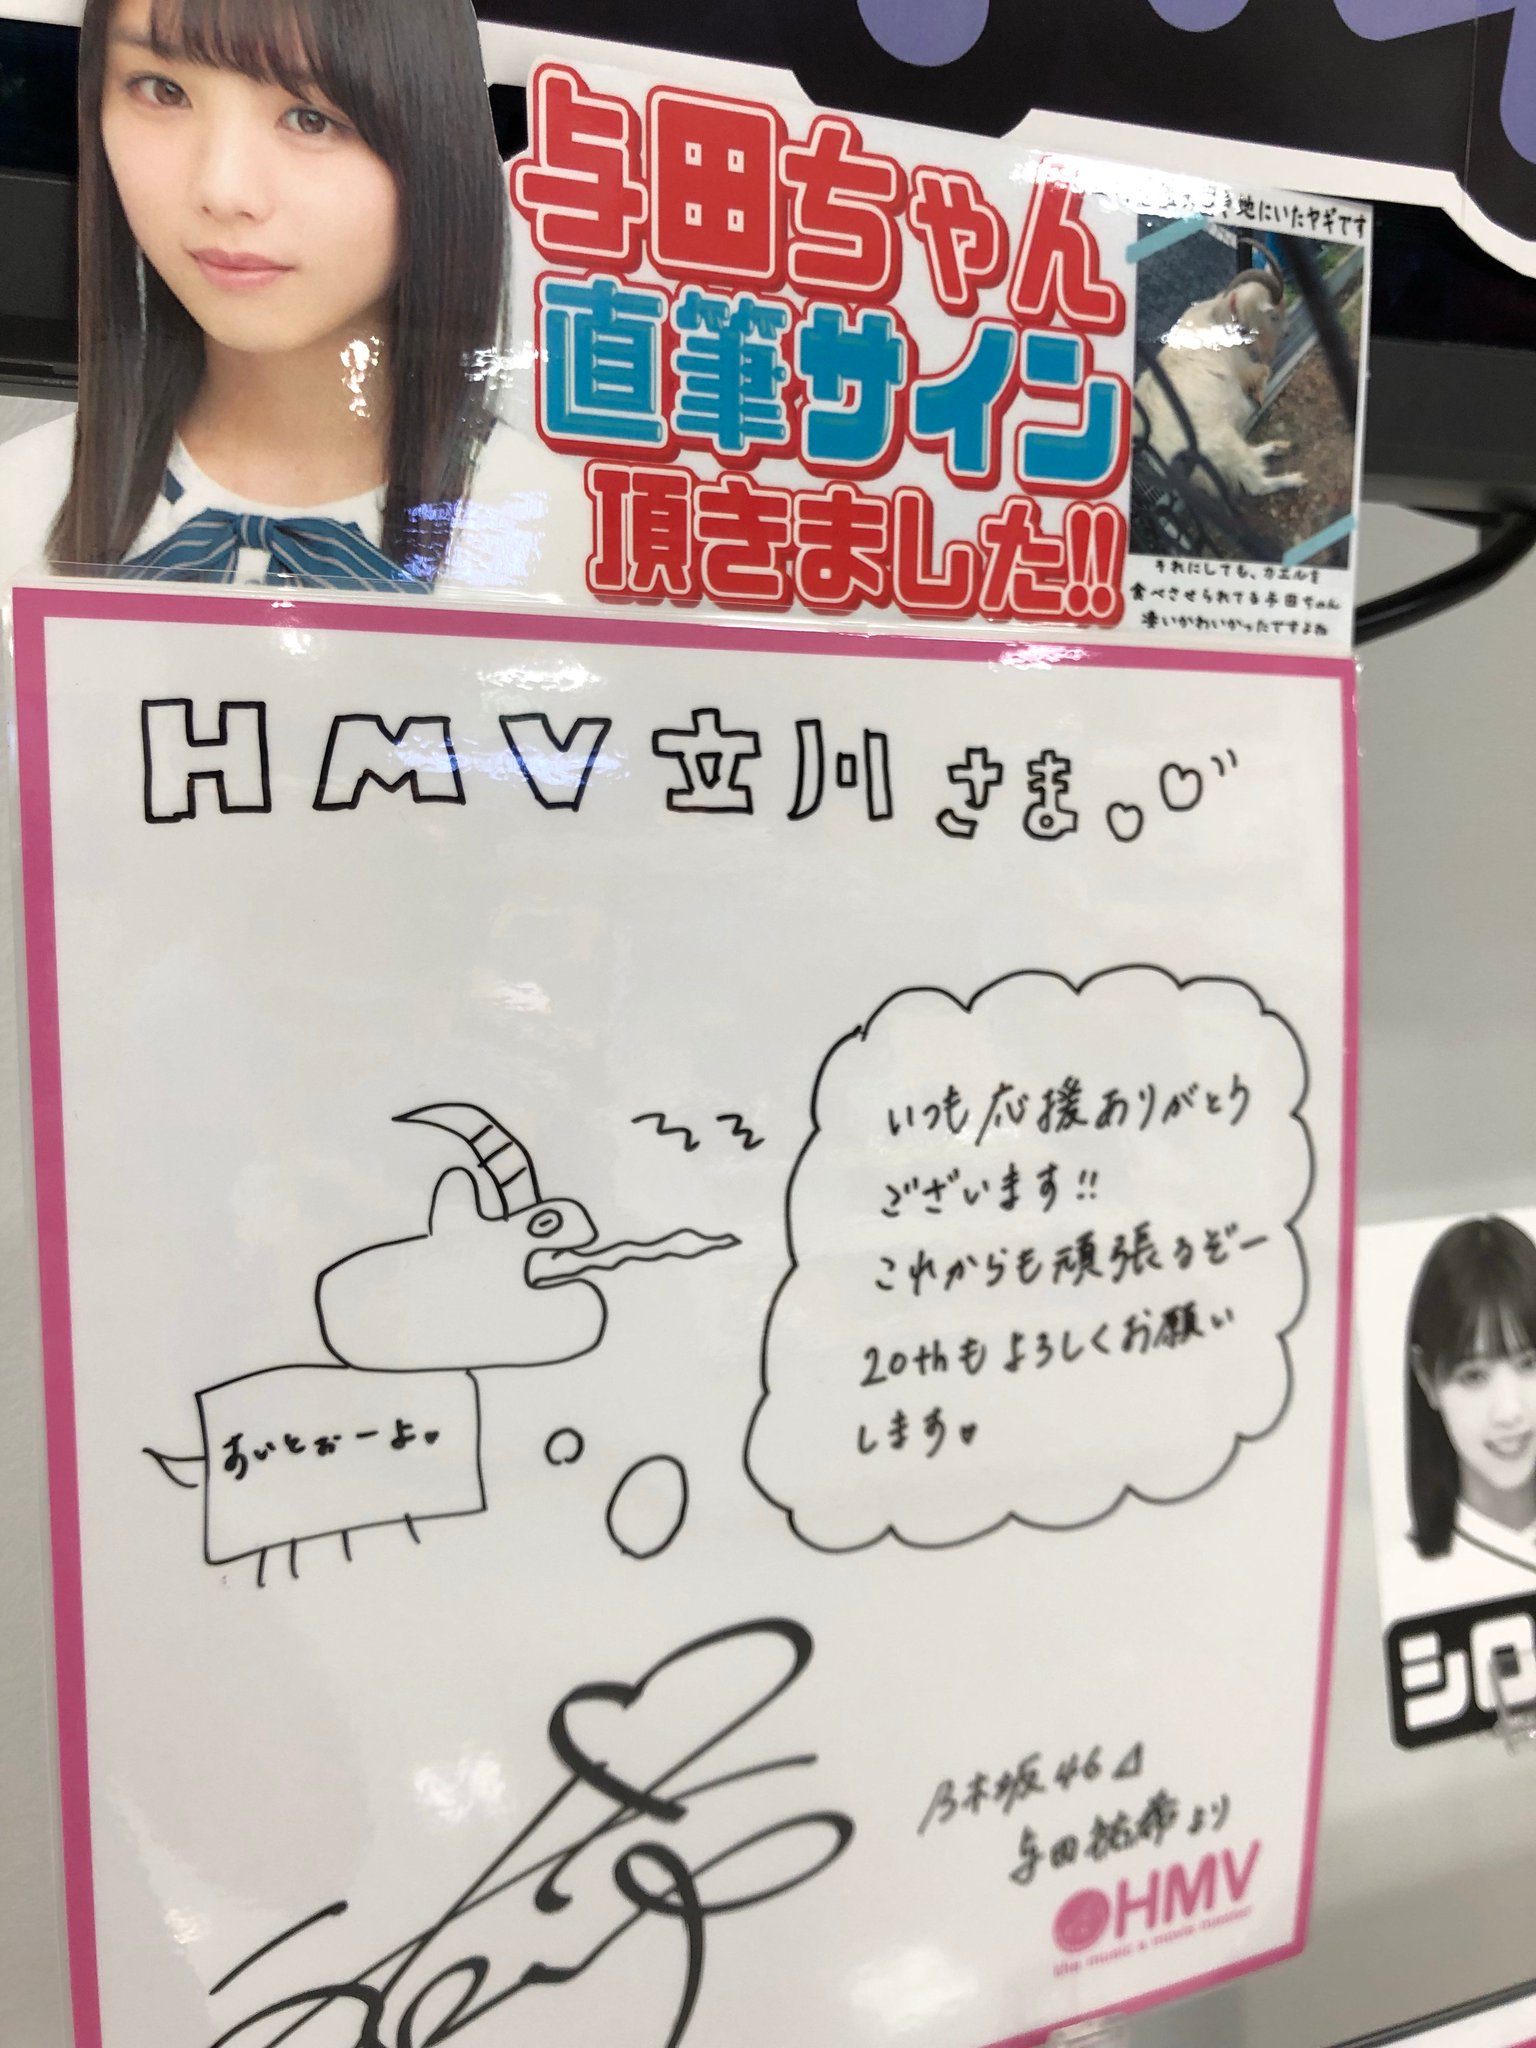 与田ちゃん
直筆サイン
頂きました!!
地にいたヤギです
それにしても、カエルを
食べさせられてる与田ちゃん
凄いかわいかったですよね
HMV立川さま
いつも応援ありがとう
ございます!!
これからも頑張るぞー
20thもよろしくお願い
します
すいとぉーよ
乃木坂46
与田祐希より
HMV
the music & movie master
シロ